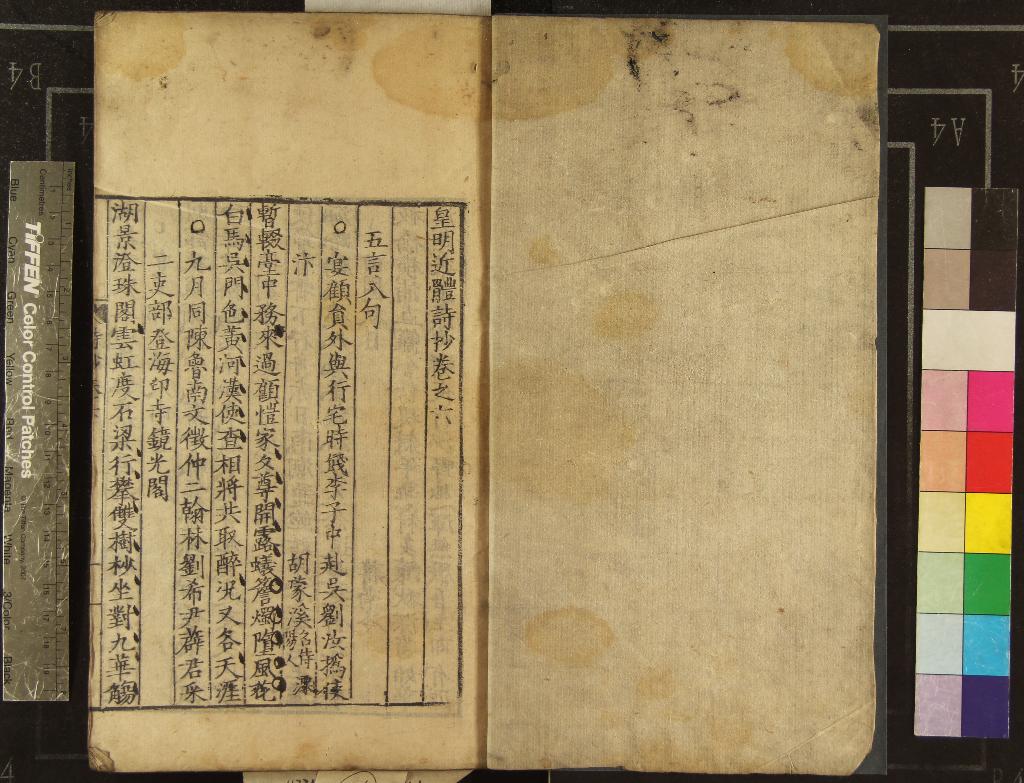 皇明近體詩抄卷之六
五言八句
○宴顧貟外與行宅時餞李子中赴吳劉汝撝使
汴
胡蒙溪名侍溧陽人
暫輟臺中務來過顧愷家夕尊開露蟻簷燭墮風花
白馬吳門色黃河漢使查相將共取醉况又各天涯
○九月同陳魯南文徵仲二翰林劉希尹薛君采
二吏部登海印寺鏡光閣
湖景澄珠閣雲虹度石梁行攀雙樹杪坐對九華觴
TIFFEN Color Control Patches
Centimetres
Inches
Blue
Cyan
Green
Yellow
Red
Magenta
White
3/Color
Black
B4
A4